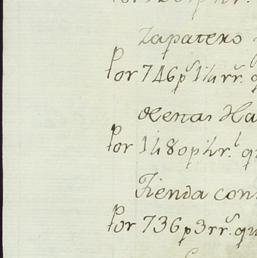 Zapatero
Por 746p 1¼ rr.s
Rentas Ha
Por 1480p ½ r.l q
Tienda con
Por 736p 3rr.s qu